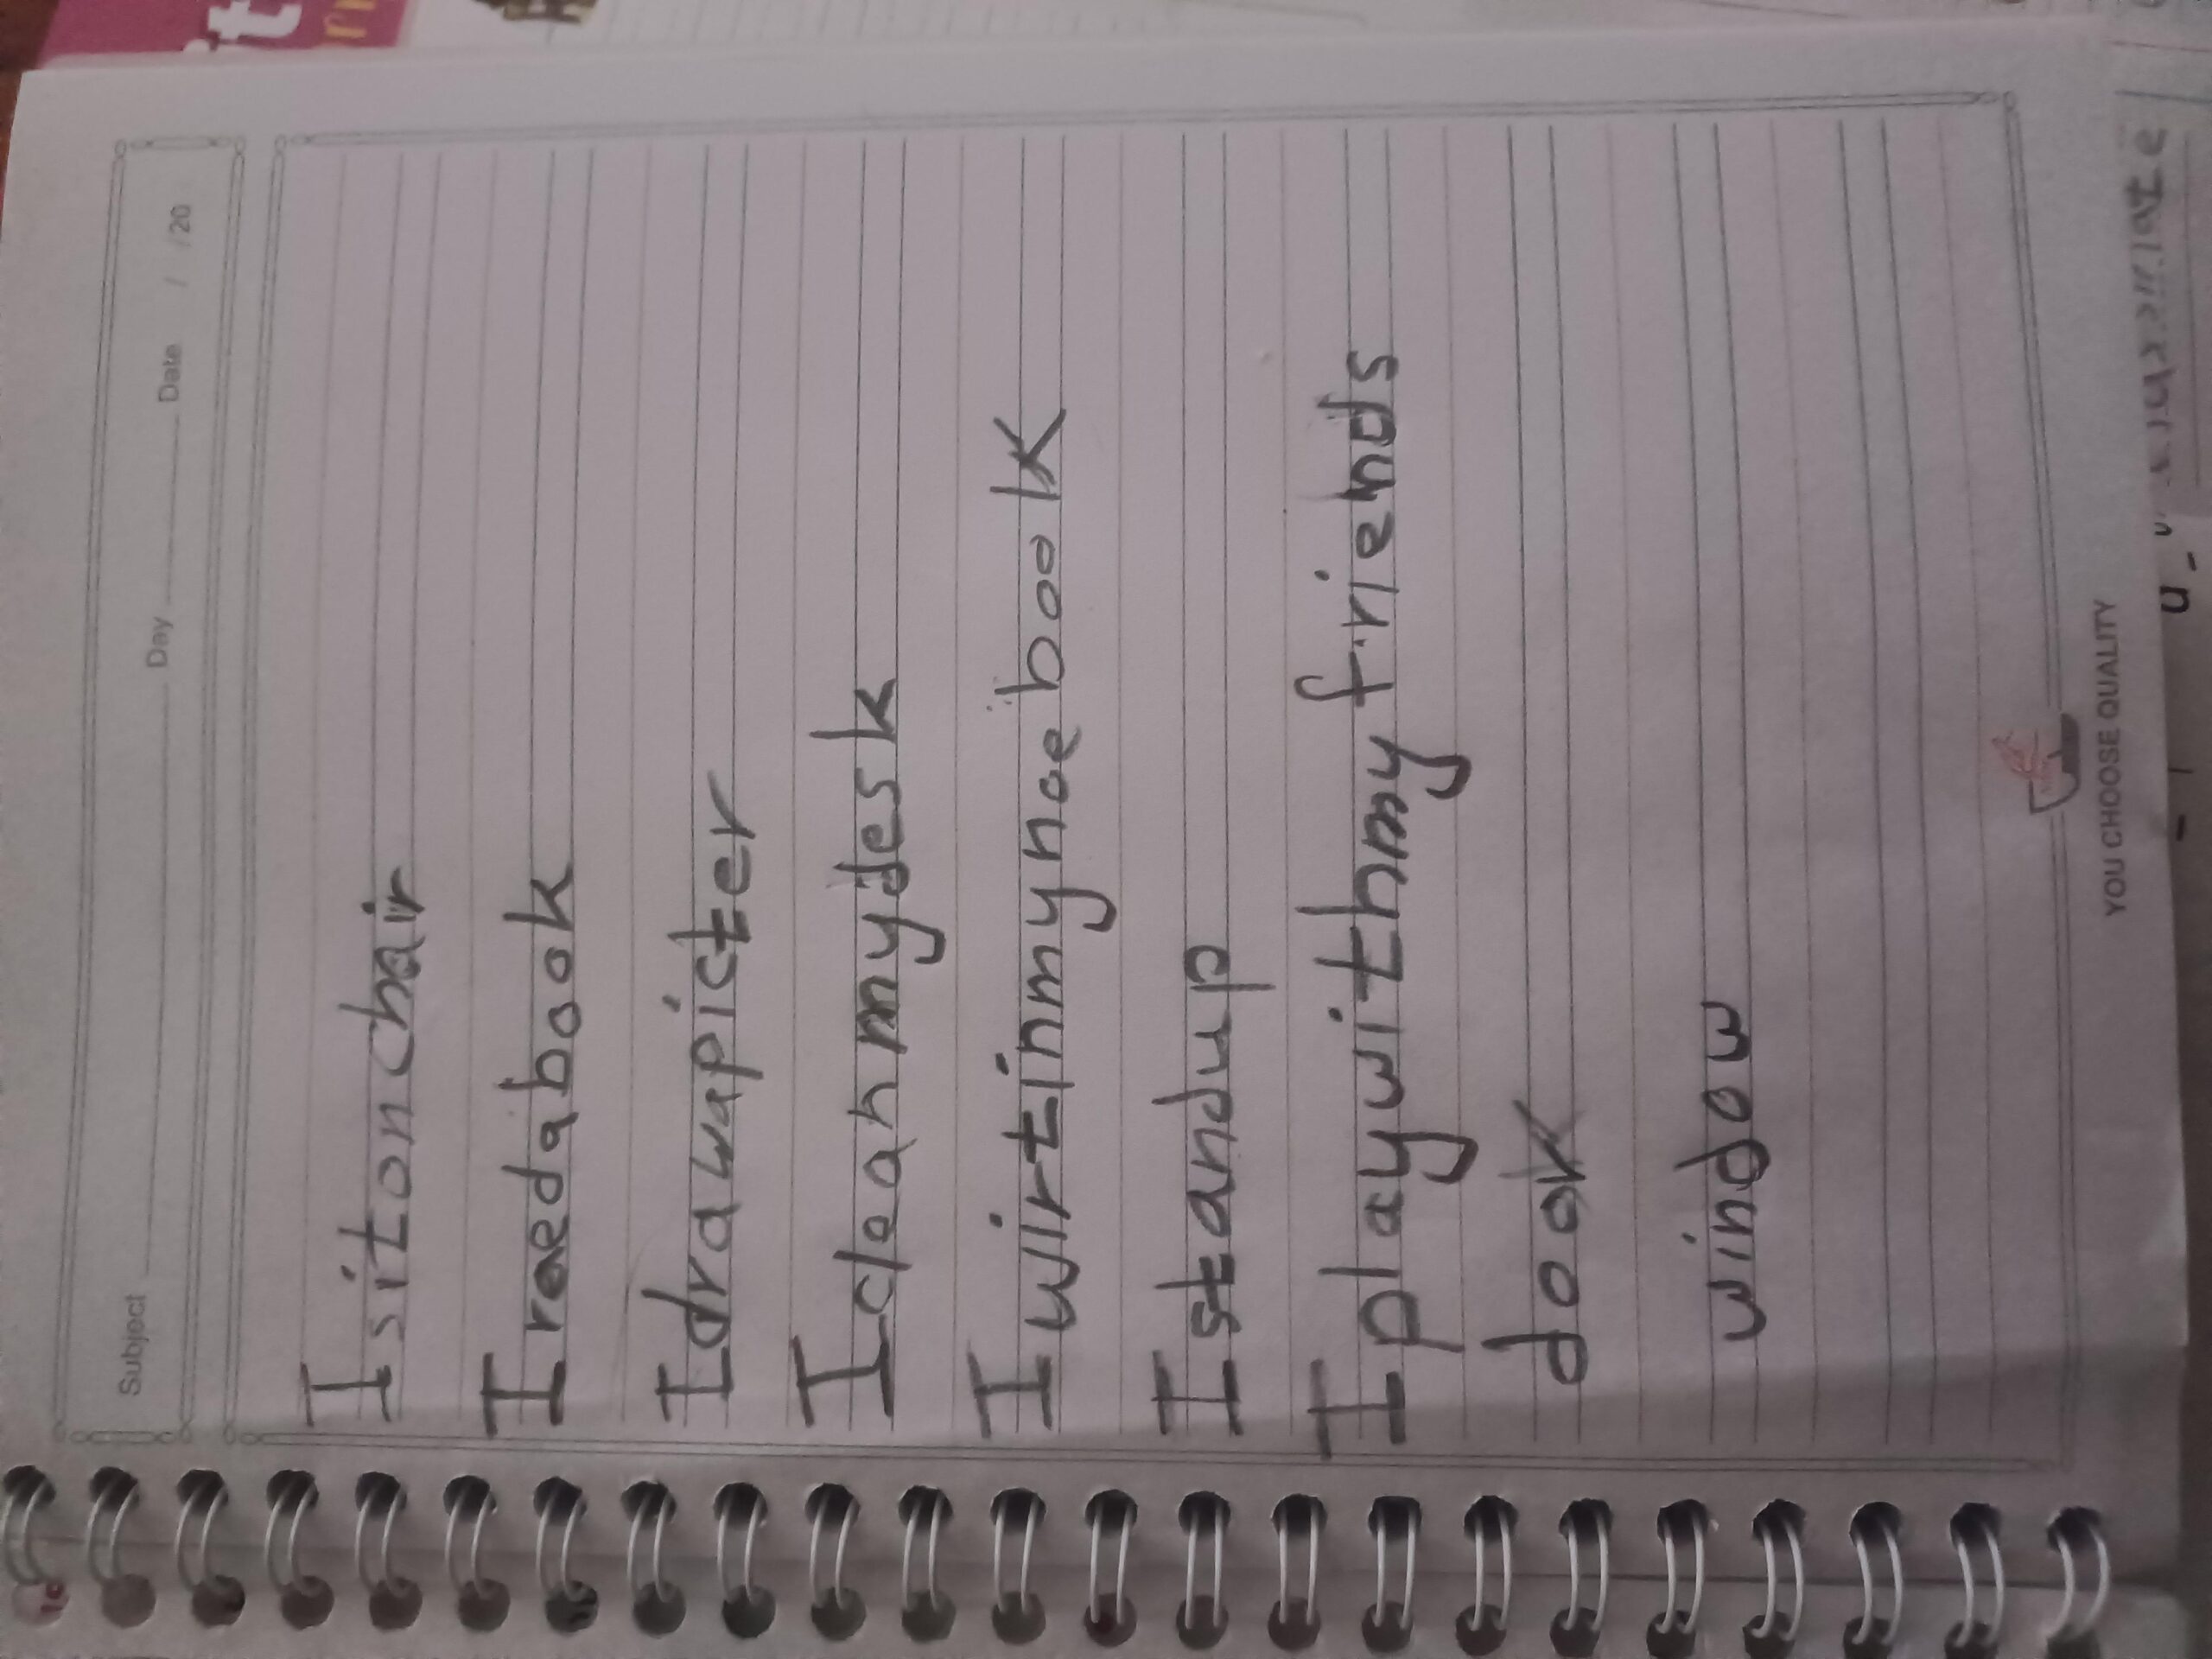 Subject Day Date / / 20
I sit on chair
I raedabook
I drawapicter
I clean mydesk
I wirtinmynoe book
I standup
I playwithmy friends
door
window
YOU CHOOSE QUALITY